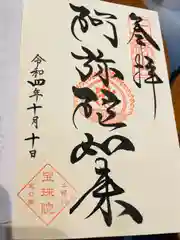 奉拝
阿弥陀如来
令和四年十月十日
宝珠院